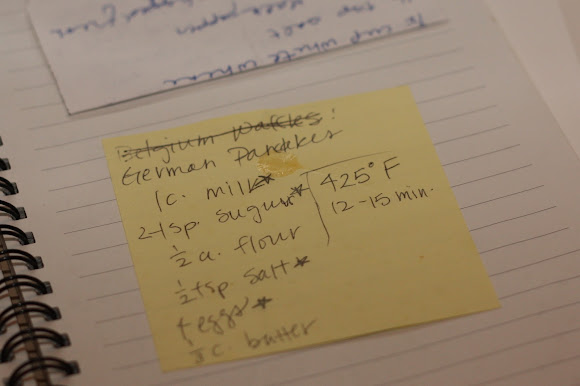 Belgium Waffles:
German Pancakes
1c. milk*
2 tsp. sugar*
½ c. flour
½ tsp salt*
4 eggs*
c. butter
425° F
12-15 min.
½ cup white
tsp salt
black pepper
chopped